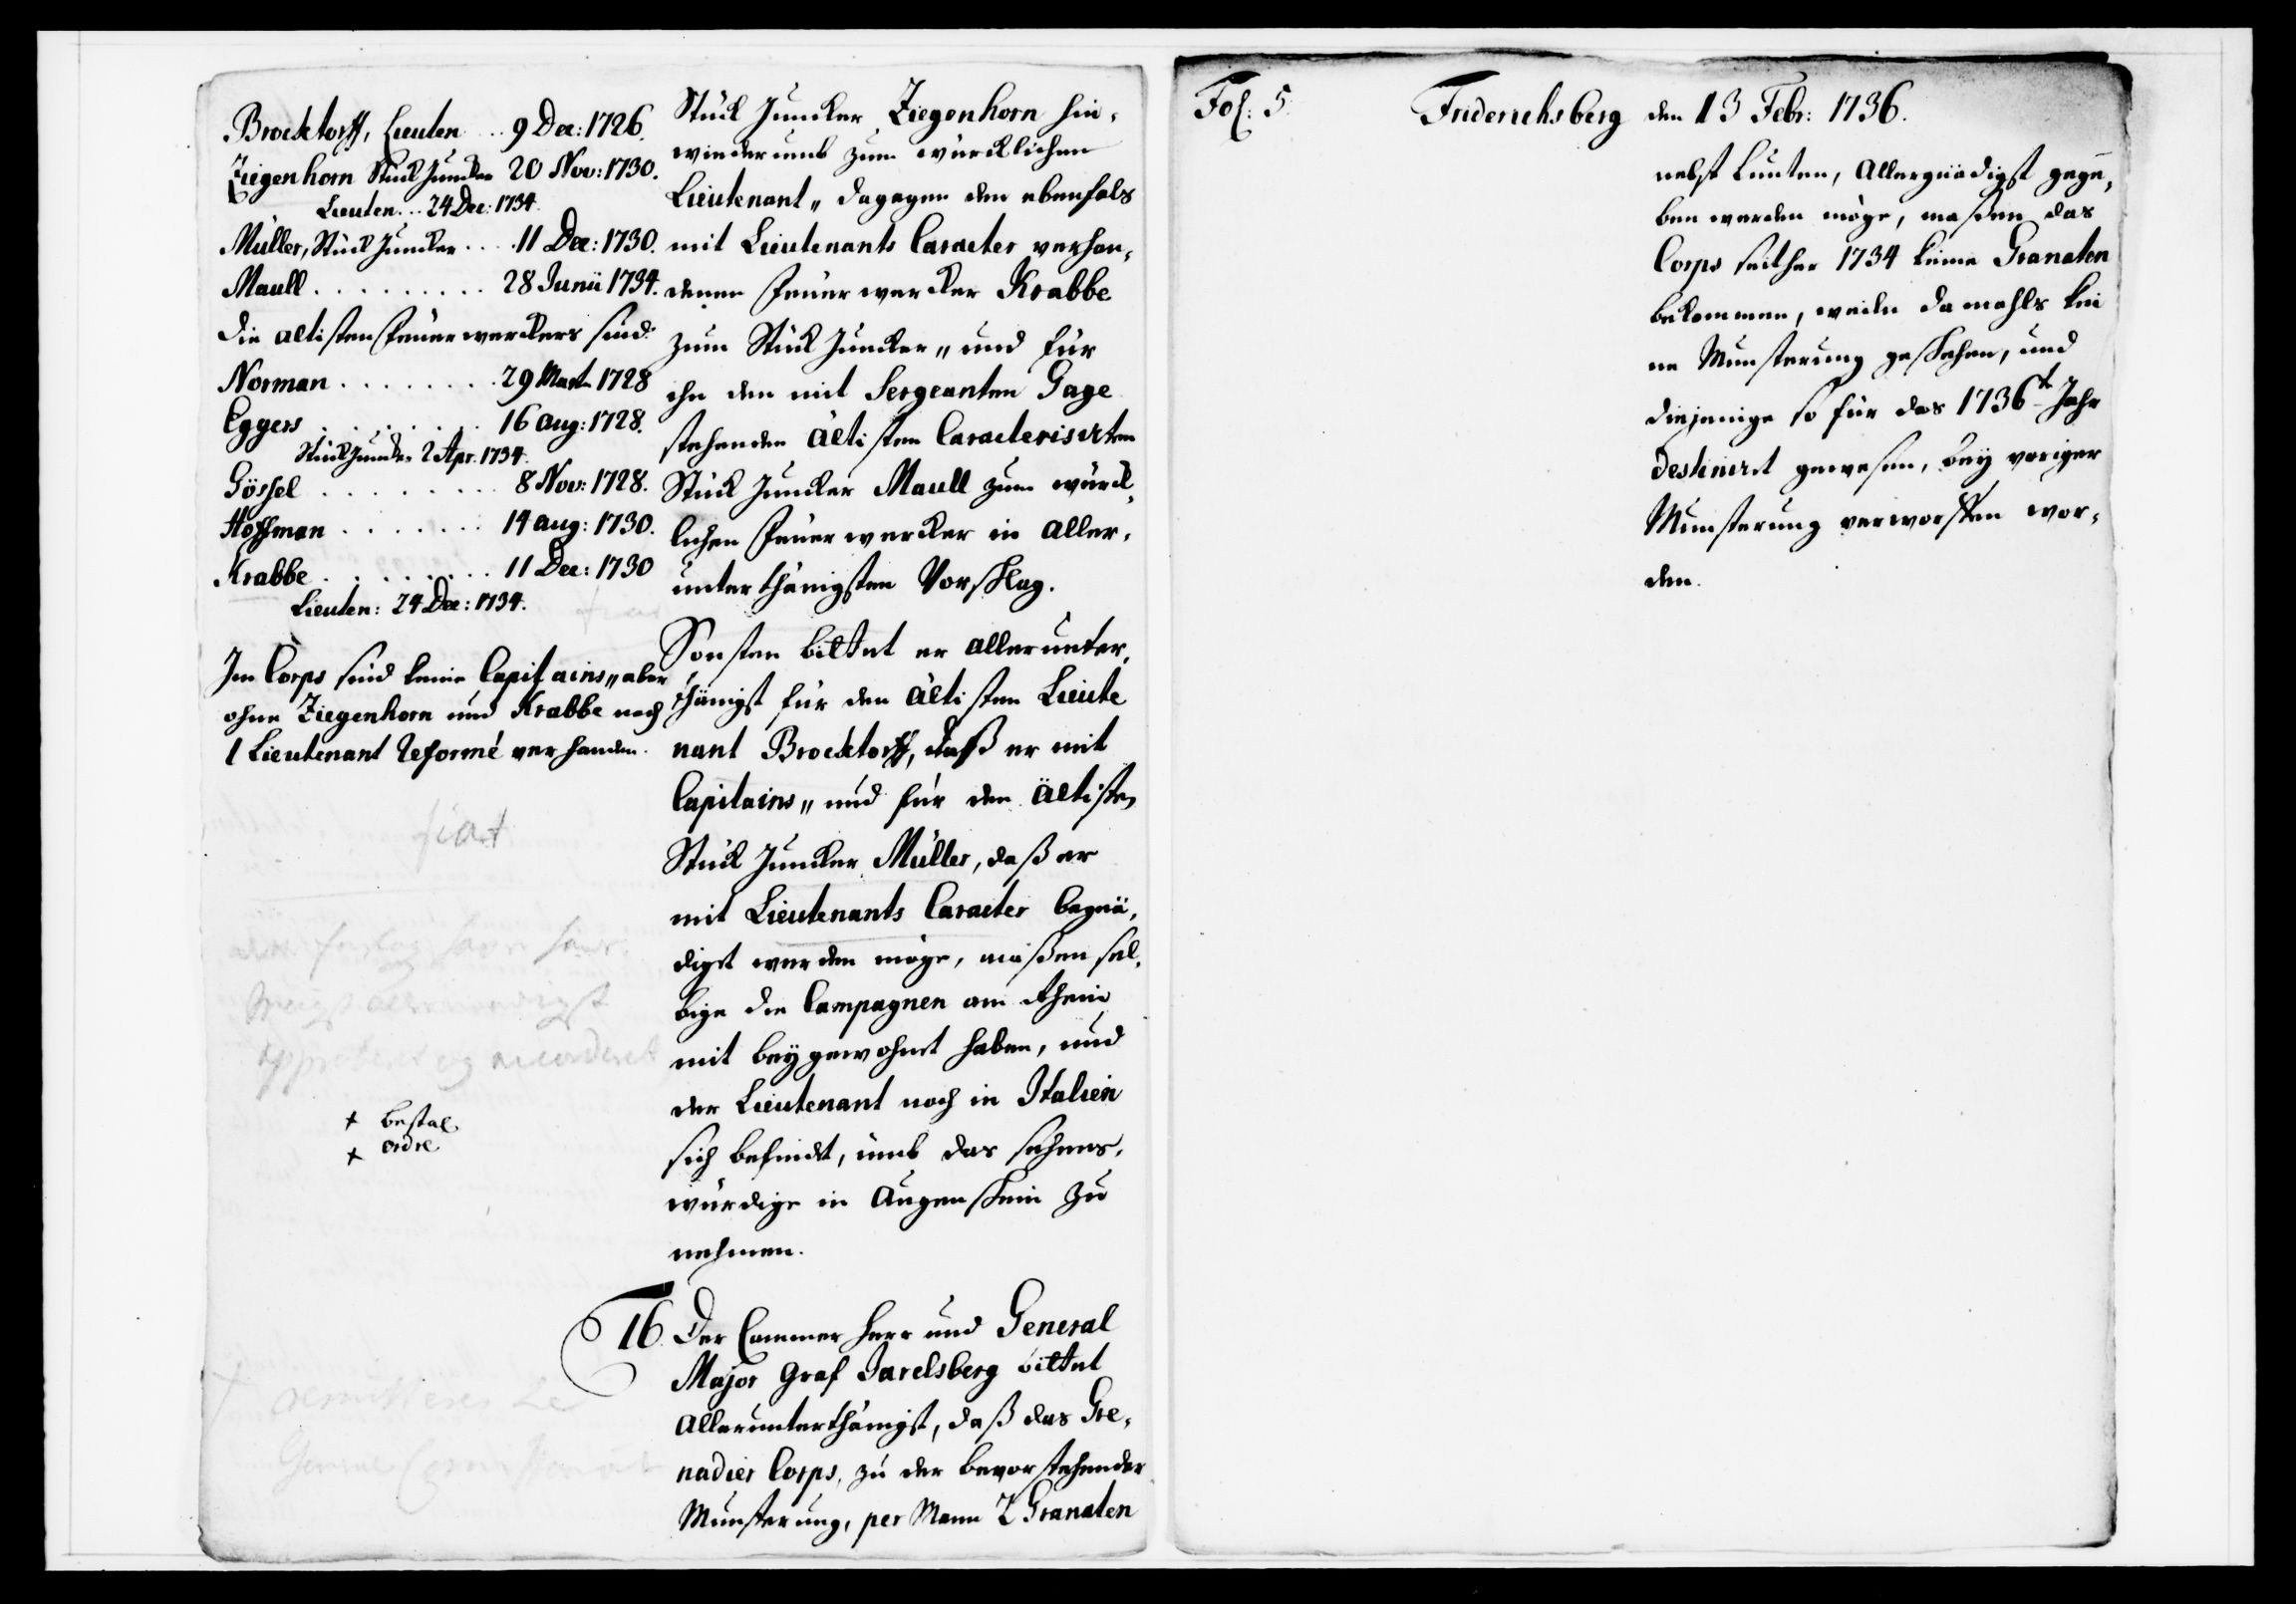 Brocktorff, Lieuten .. 9 Dec: 1726.
Ziegenhorn Stück Juncker 20 Nov: 1730.
Lieuten... 24 Dec: 1734.
Müller, Stück Juncker . . . 11 Dec: 1730.
Maull . . . . . . . . . 28 Junii 1734.
die altisten feuerwerckers sind:
Norman . . . . . . . . 29 Mart 1728
Eggers . . . . . . . . 16 aug: 1728.
Stück Juncker 2 Apr. 1734.
Gössel . . . . . . . . 8 Nov: 1728.
Hoffman . . . . . . . 14 aug: 1730.
Krabbe . . . . . . . . . 11 Dec: 1730
Lieuten: 24 Dec: 1734.
Im Corps sind keine Capitains,, aber
ohne Ziegenhorn und Krabbe noch
1 Lieutenant Reformé verhanden.
fiat
allernaadigst
approberet og accorderet
+ bestal
+ ordre
+
General Commissariat
Stück Juncker Ziegenhorn hin,
wiederumb zum würcklichen
Lieutenant,, dagegen den ebenfals
mit Lieutenants Caracter verhan,
denen feuerwercker Krabbe
zum Stück Juncker,, und für
ihn den mit Sergeanten Gage
stehenden ältisten Caracterisirten
Stück Juncker Maull zum würck,
lichen feuerwercker in aller,
unterthänigsten Vorschlag.
Sonsten bittet er allerunter,
thänigst für den ältisten Lieute
nant Brocktorff, daß er mit
Capitains,, und für den ältisten
Stück Juncker Müller, daß er
mit Lieutenants Caracter begnä,
diget werden möge, maßen sel,
bige die Campagnen am Rhein
mit beygewohnt haben, und
der Lieutenant noch in Italien
sich befindet, umb das sehens,
würdige in Augenschein zu
nehmen.
16. Der Cammer Herr und General
Major Graf Jarelsberg bittet
allerunterthänigst, daß das Gre,
nadier Corps, zu der bevorstehender
Munsterung, per Mann 2 Granaten
Fol: 5.
Friderichsberg den 13 Febr: 1736.
nebst Lunten, Allergnädigst gege,
ben werden möge, maßen das
Corps seither 1734 keine Granaten
bekommen, weiln damahls kei
ne Munsterung geschehen, und
diejenige so für das 1736te Jahr
destiniret gewesen, bey voriger
Munsterung verworffen wor,
den.